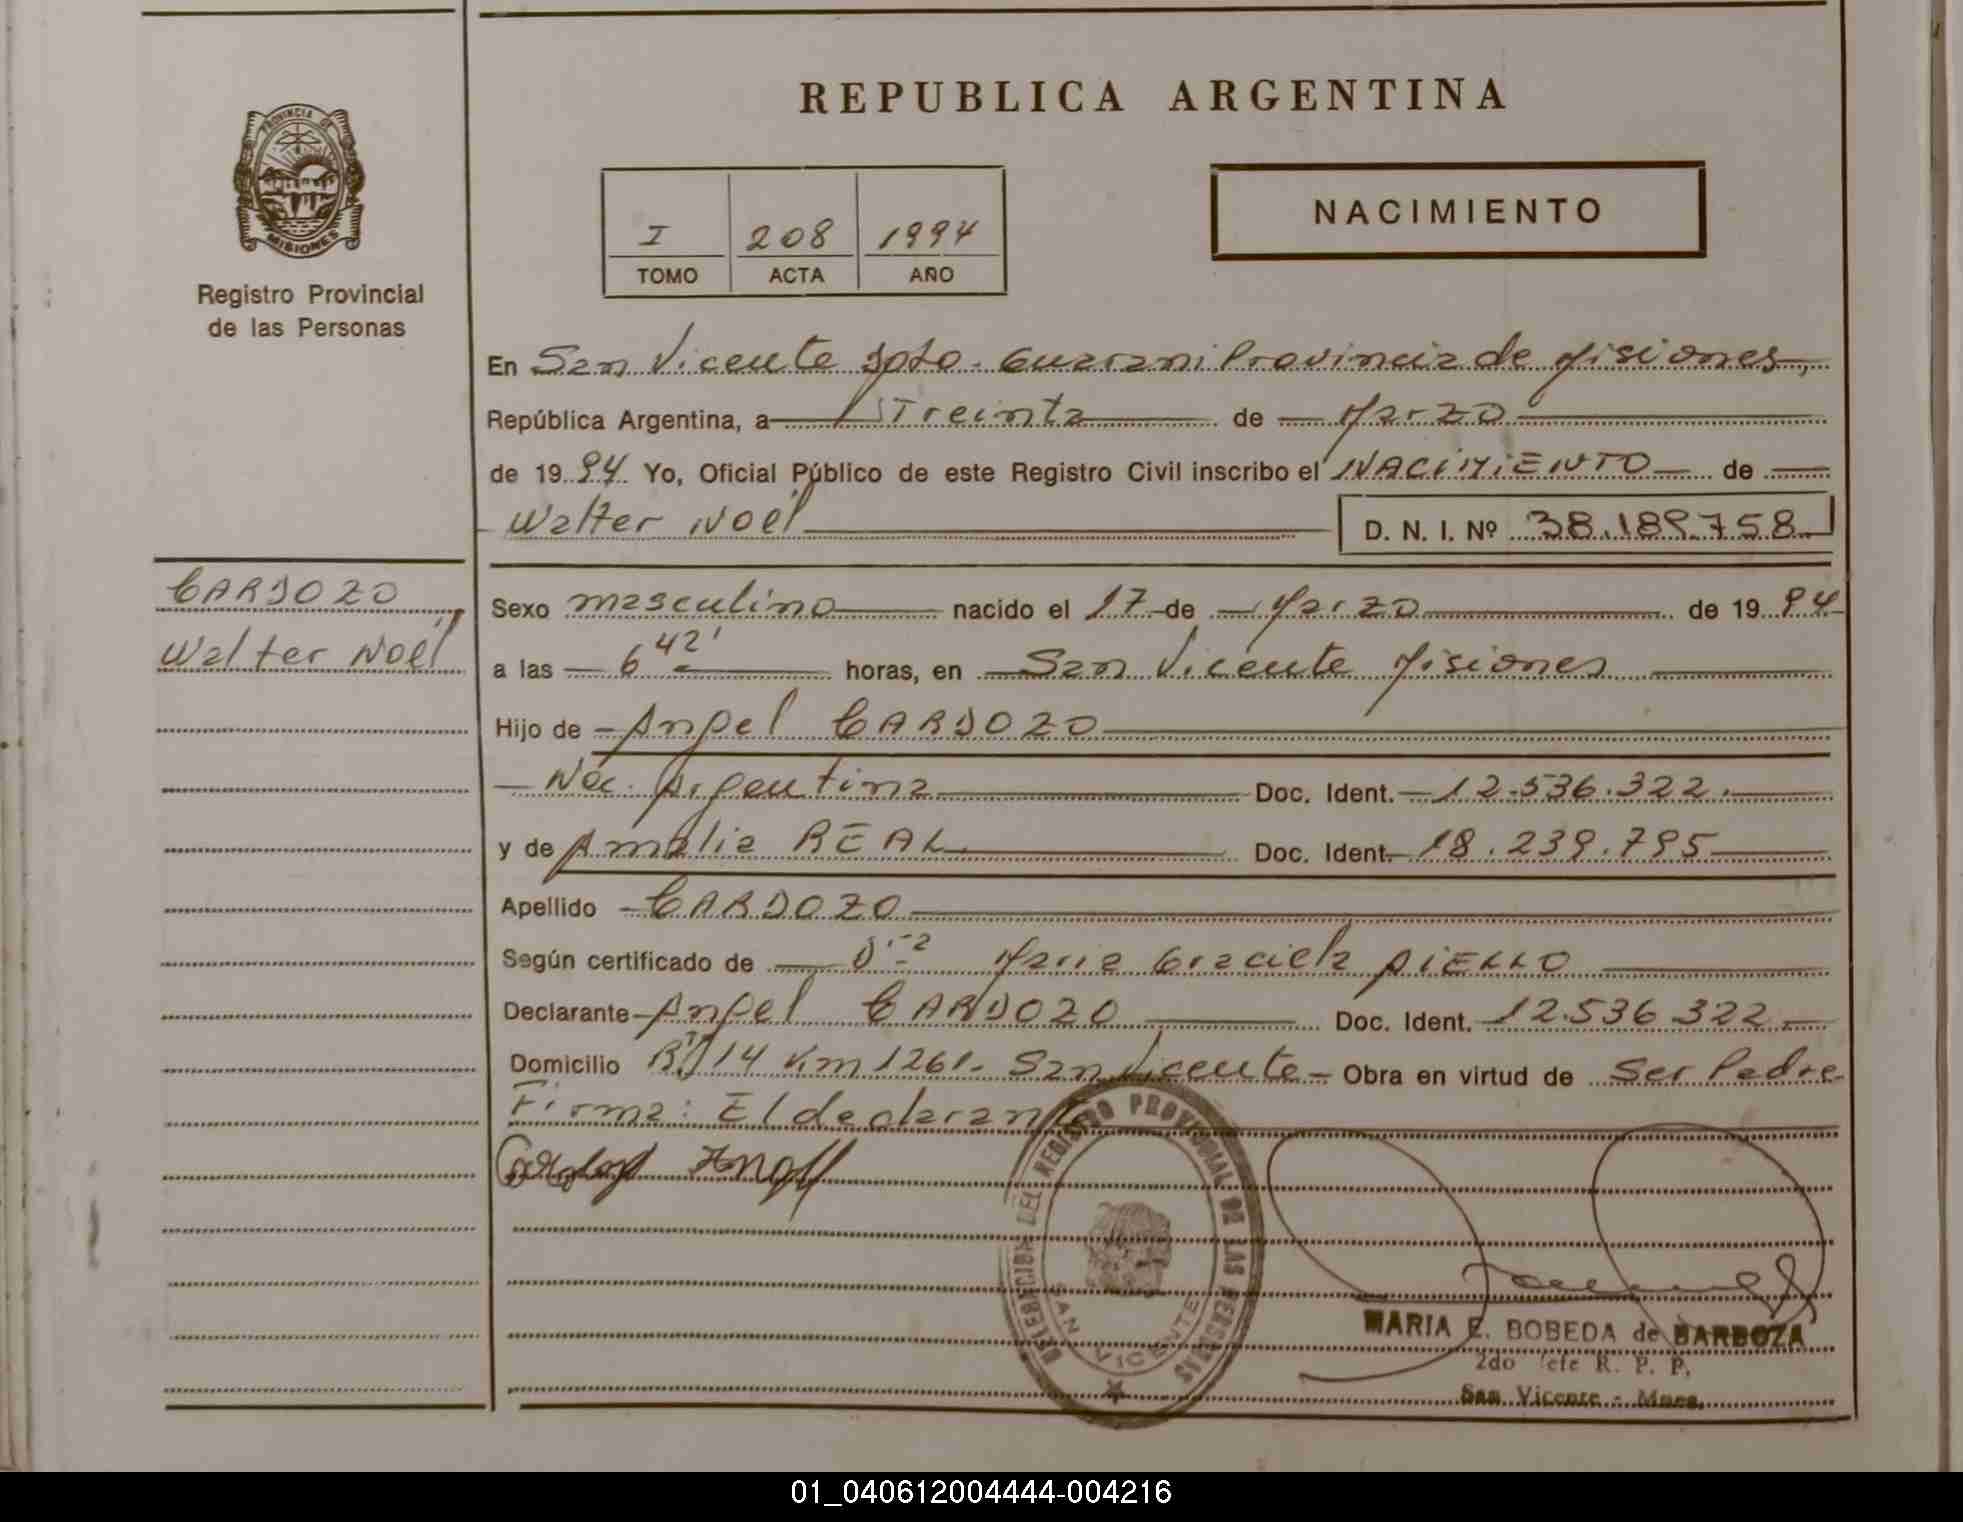 REPUBLICA ARGENTINA
PROVINCIA DE
MISIONES
Registro Provincial
de las Personas
I 208 1994
TOMO ACTA AÑO
NACIMIENTO
En San Vicente Dpto. Guarani Provincia de Misiones,
República Argentina, a Treinta de Marzo
de 19 94 Yo, Oficial Público de este Registro Civil inscribo el NACIMIENTO de
Walter Noel D. N. I. Nº 38.189.758
CARDOZO
Walter Noel
Sexo masculino nacido el 17 de Marzo de 19 94
a las 6 42' horas, en San Vicente Misiones
Hijo de Angel CARDOZO
Nac. Argentina Doc. Ident. 12.536.322.
y de Amalia REAL. Doc. Ident. 18.239.795
Apellido CARDOZO
Según certificado de Dra Maria Graciela AIELLO
Declarante Angel CARDOZO Doc. Ident. 12.536.322.
Domicilio 14 Km 1261. San Vicente Obra en virtud de Ser Padre
Firma: El declarante
DEL REGISTRO PROVINCIAL DE LAS PERSONAS
SAN VICENTE
MARIA E. BOBEDA de BARBOZA
2do Jefe R. P. P.
San Vicente - Mnes.
01_040612004444-004216